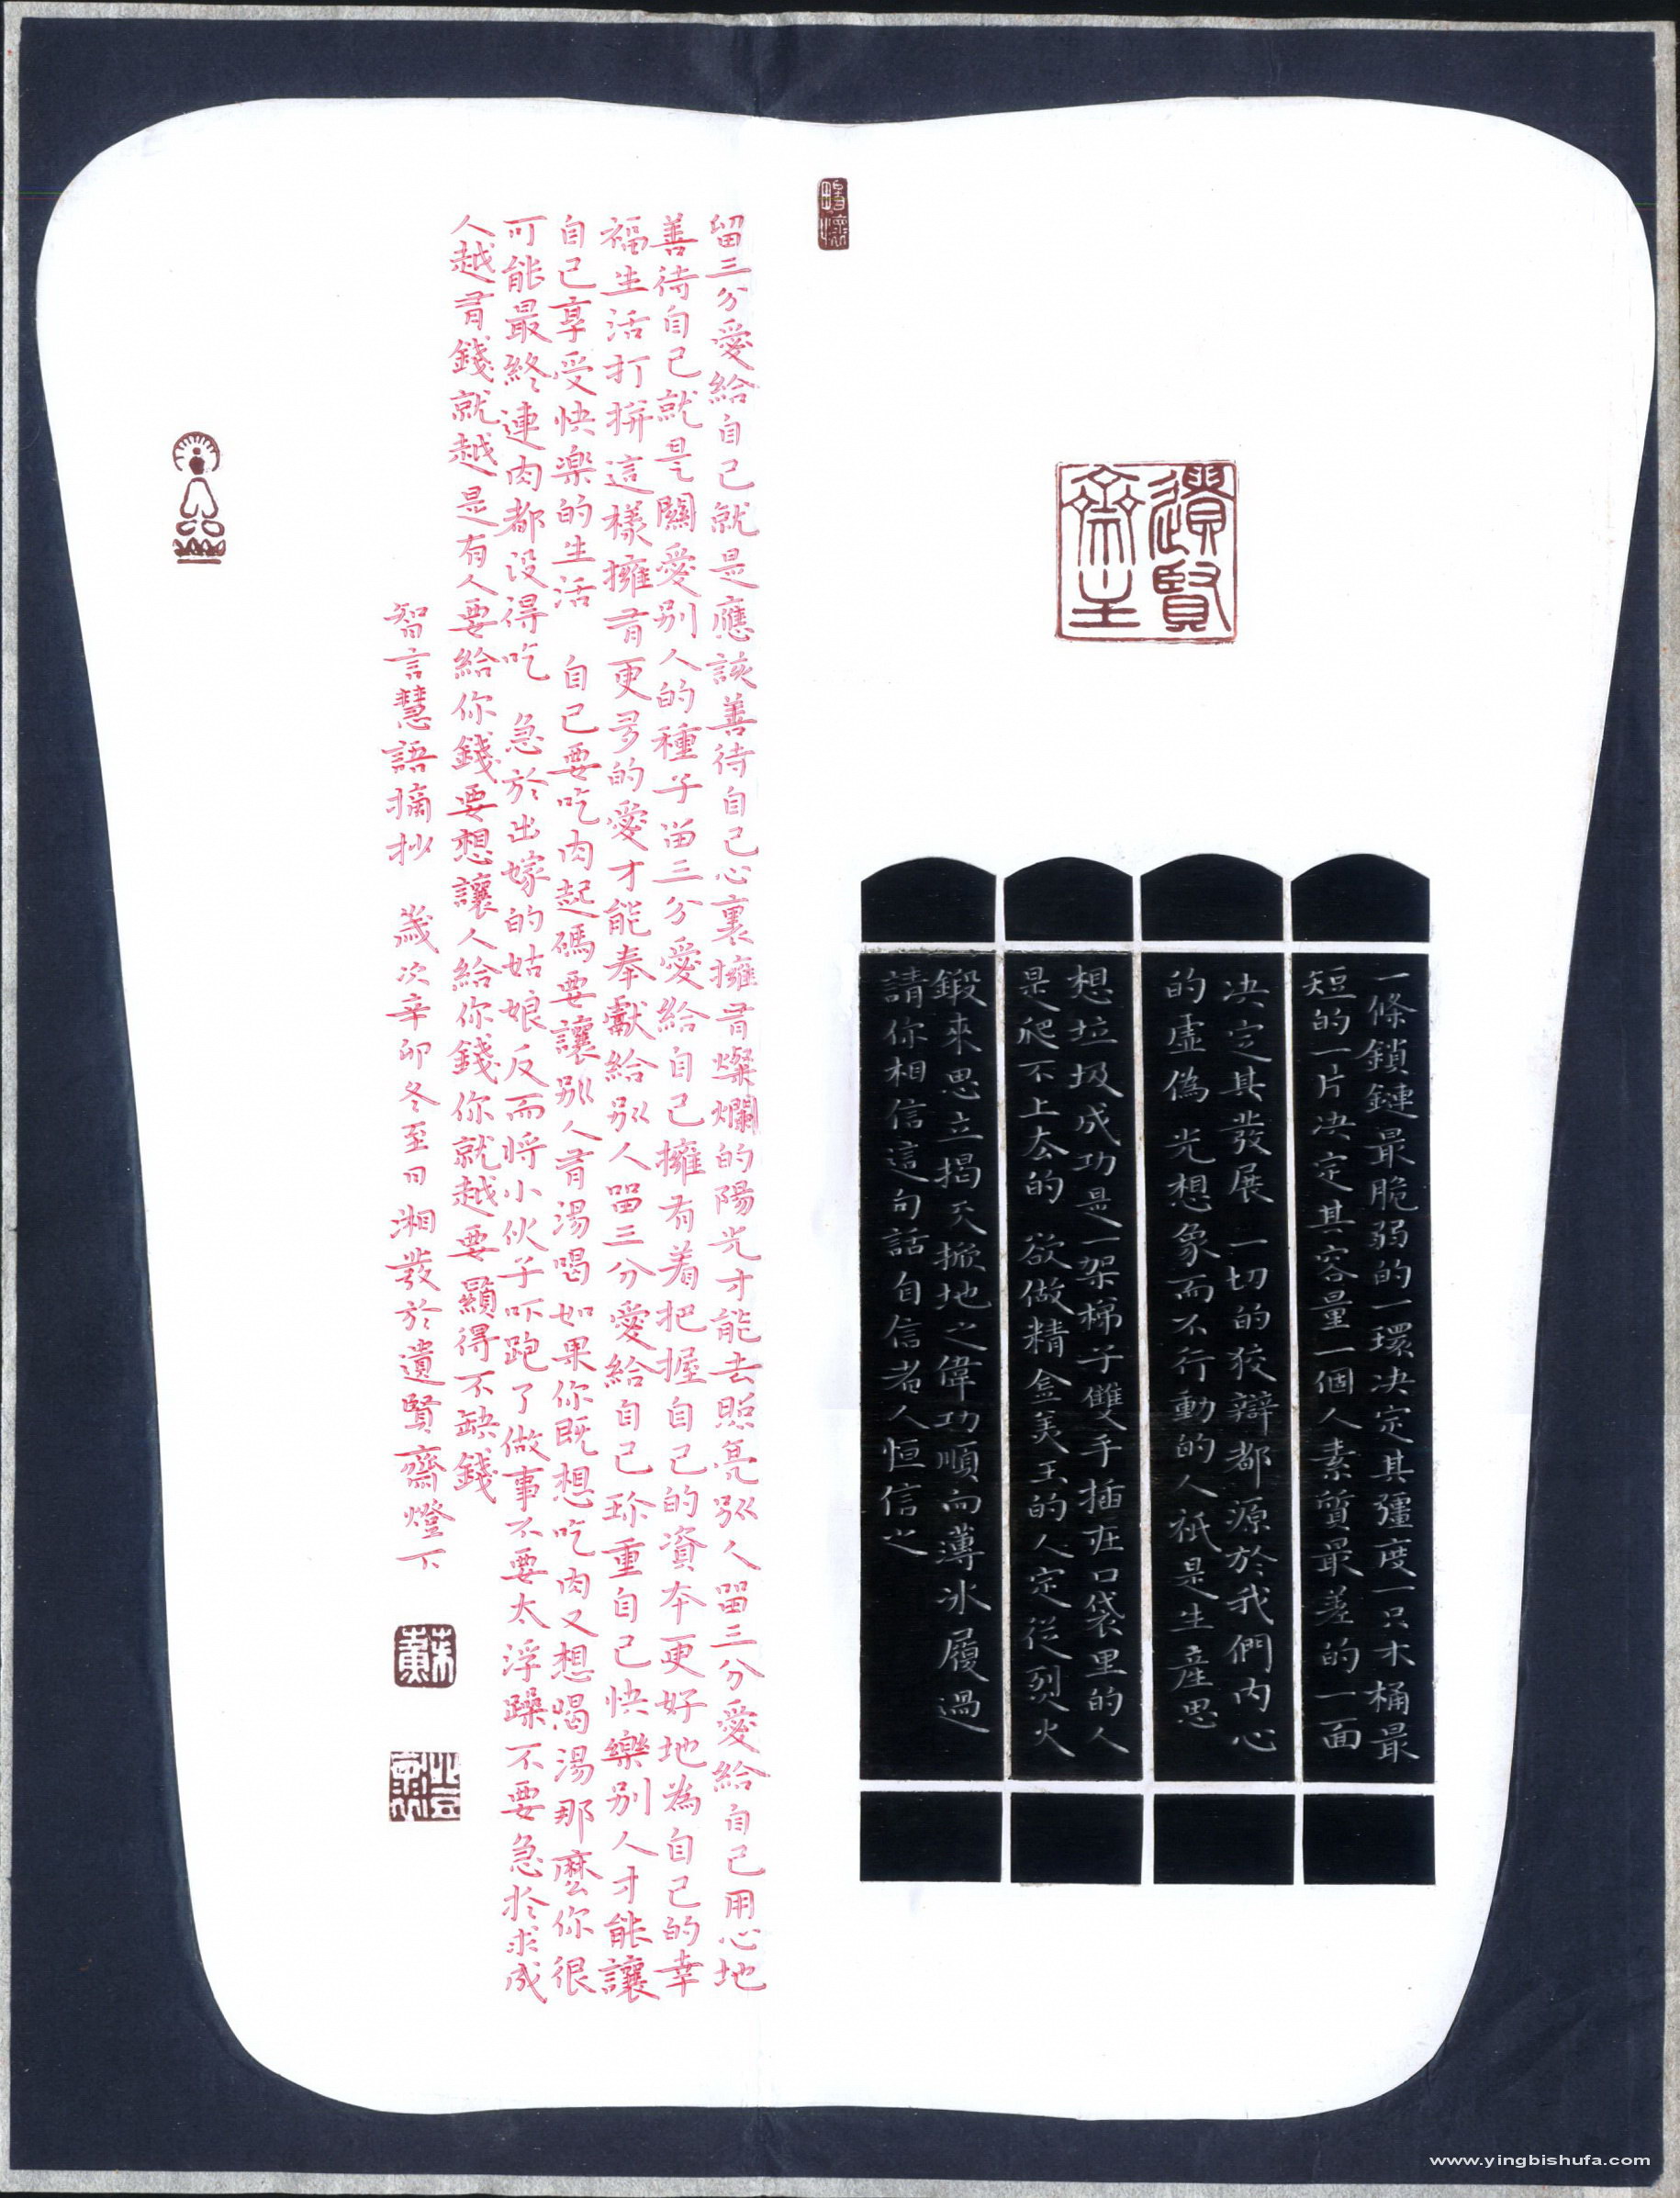 遺賢
齋主
一條鎖鏈最脆弱的一環决定其彊度一只木桶最
短的一片决定其容量一個人素質最差的一面
决定其發展 一切的狡辯都源於我們内心
的虛偽 光想象而不行動的人祇是生產思
想垃圾成功是一架梯子雙手插在口袋里的人
是爬不上去的 欲做精金美玉的人定從烈火
鍛來思立揭天掀地之偉功順向薄冰履過
請你相信這句話自信者人恒信之
留三分愛給自己就是應該善待自己心裏擁有燦爛的陽光才能去照亮别人留三分愛給自己用心地
善待自己就是關愛别人的種子留三分愛給自己擁有着把握自己的資本更好地為自己的幸
福生活打拼這樣擁有更多的愛才能奉獻給别人留三分愛給自己珍重自己快樂别人才能讓
自己享受快樂的生活 自己要吃肉起碼要讓别人有湯喝如果你既想吃肉又想喝湯那麼你很
可能最終連肉都没得吃 急於出嫁的姑娘反而將小伙子吓跑了做事不要太浮躁不要急於求成
人越有錢就越是有人要給你錢要想讓人給你錢你就越要顯得不缺錢
智言慧語摘抄 歲次辛卯冬至日湘發於遺賢齋燈下
www.yingbishufa.com